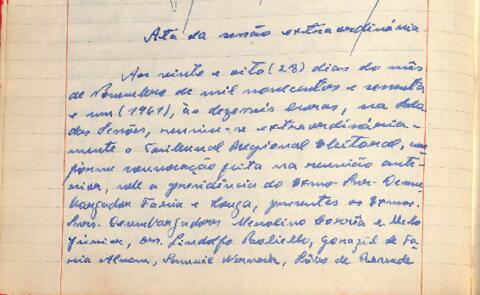 Ata da sessão extraordinária
Aos vinte e oito (28) dias do mês
de Novembro de mil novecentos e sessenta
e um (1961), às dezesseis horas, na Sala
das Sessões, reuniu-se extraordinária-
mente o Tribunal Regional Eleitoral, con
forme convocação feita na reunião ante-
rior, sob a presidência do Exmo. Snr. Desem
bargador Faria e Souza, presentes os Exmos.
Snrs. Desembargadores Merolino Corrêa e Melo
Júnior, drs. Lindolfo Paoliello, Gonzaga de Fa
ria Alvim,